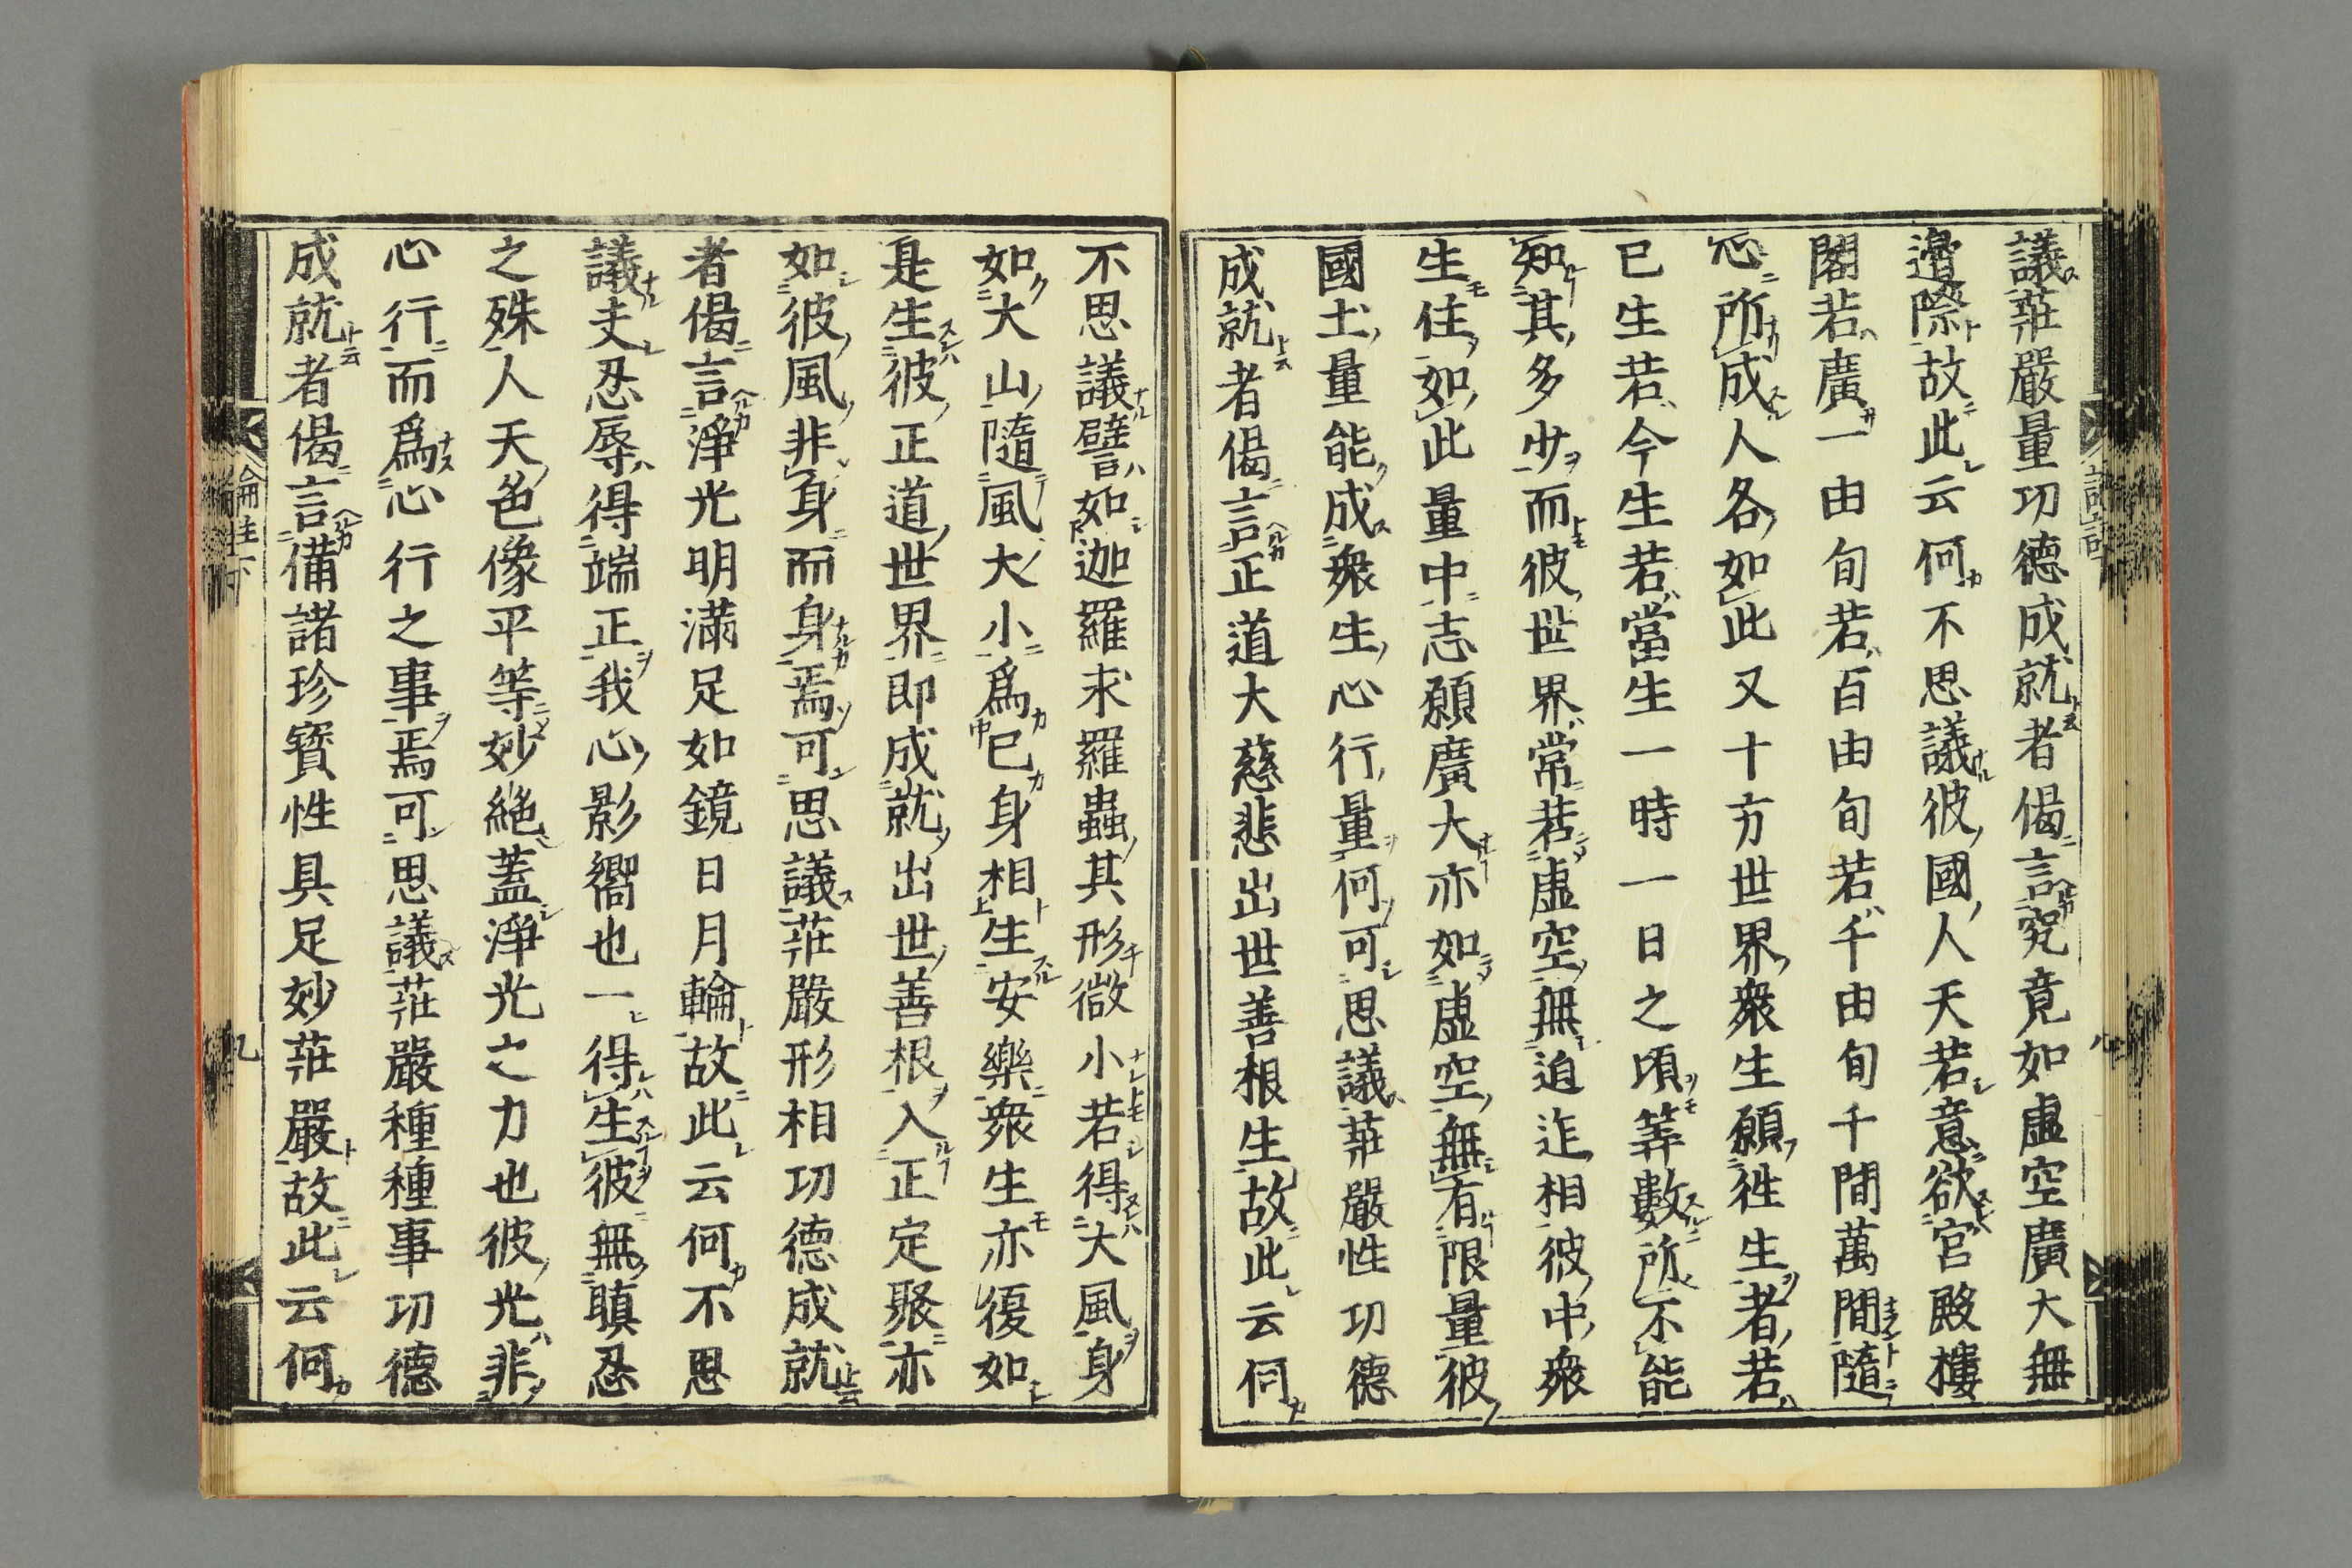 議莊嚴量功德成就者偈言究竟如虛空廣大無
邊際故此云何不思議彼國人天若意欲宮殿樓
閣若廣一由旬若百由旬若千由旬千間萬間隨
心所成人各如此又十方世界衆生願徃生者若
已生若今生若當生一時一日之頃筭數所不能
知其多少而彼世界常若虛空無迫迮相彼中衆
生住如此量中志願廣大亦如虛空無有限量彼
國土量能成衆生心行量何可思議莊嚴性功德
成就者偈言正道大慈悲出世善根生故此云何
不思議譬如迦羅求羅蟲其形微小若得大風身
如大山隨風大小爲己身相生安樂衆生亦復如
是生彼正道世界即成就出世善根入正定聚亦
如彼風非身而身焉可思議莊嚴形相功德成就
者偈言淨光明滿足如鏡日月輪故此云何不思
議夫忍辱得端正我心影嚮也一得生彼無瞋忍
之殊人天色像平等妙絕蓋淨光之力也彼光非
心行而爲心行之事焉可思議莊嚴種種事功德
成就者偈言備諸珍寶性具足妙莊嚴故此云何
論註下
九